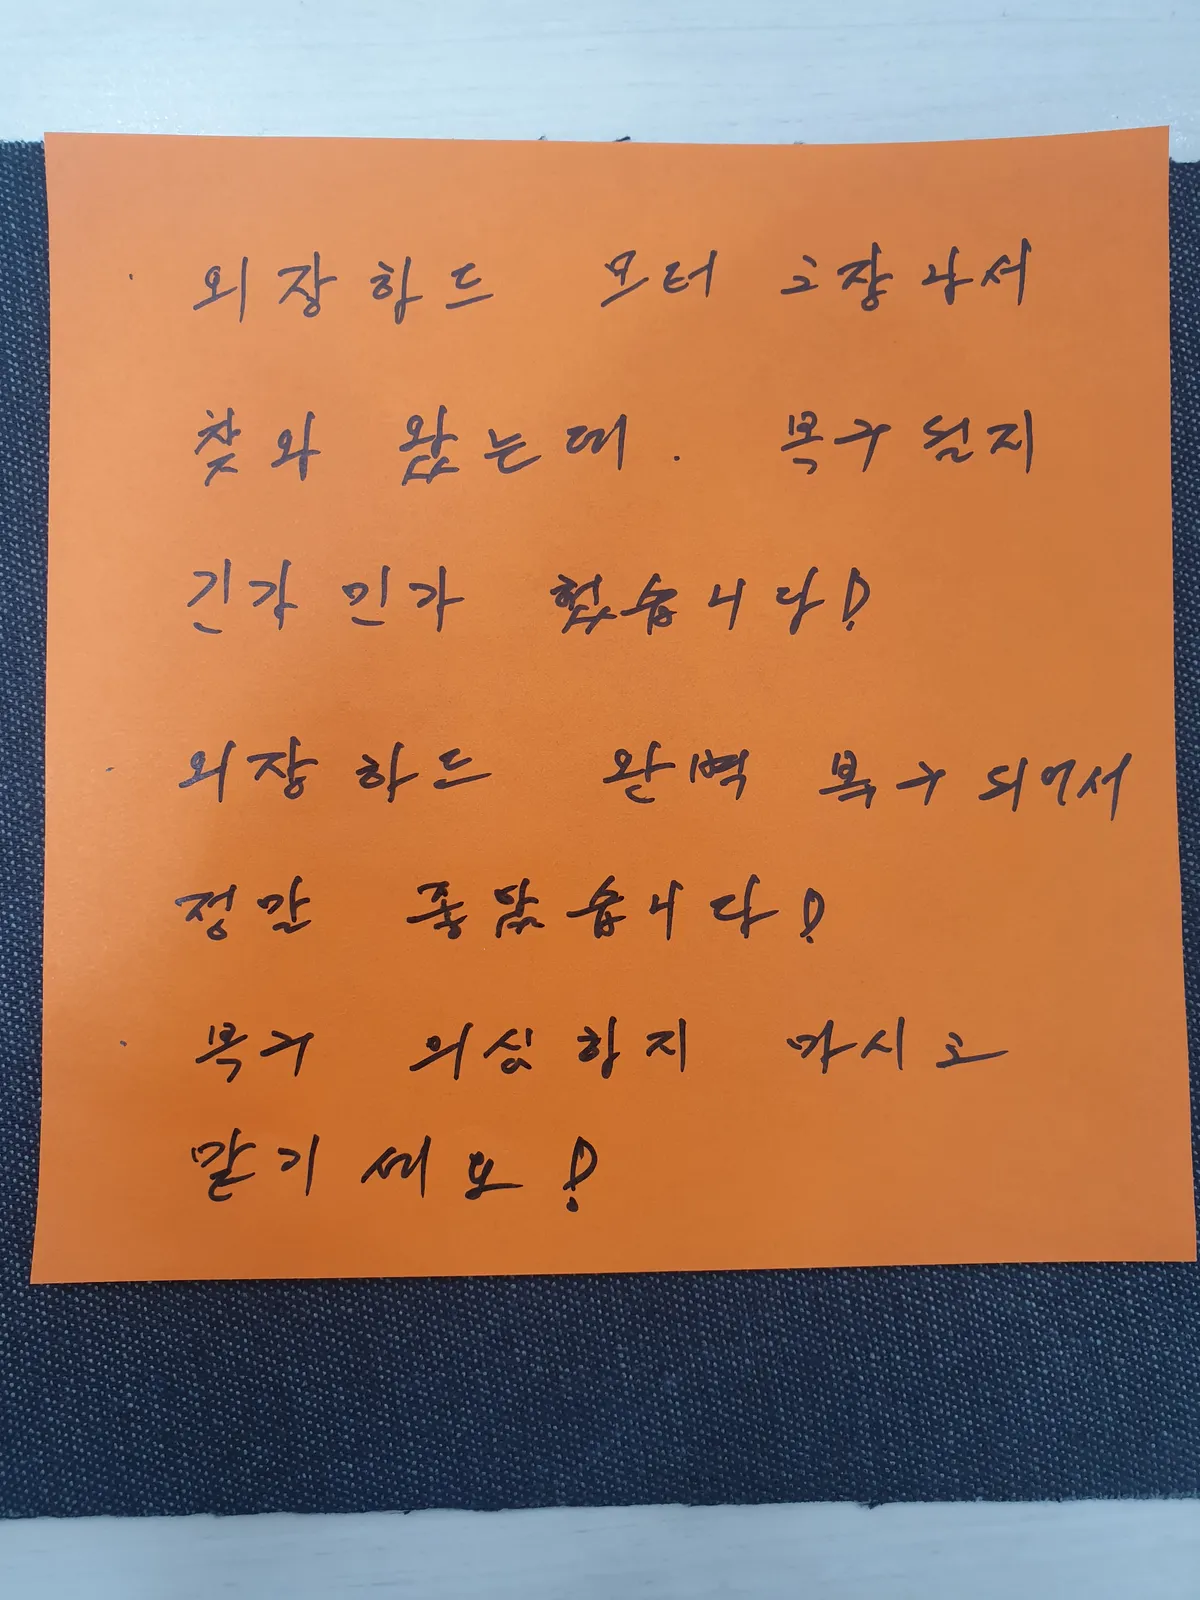 · 외장하드 모터 고장나서
찾와 왔는데. 복구될지
긴가 민가 했습니다!
· 외장하드 완벽 복구되어서
정말 좋았습니다!
· 복구 의심하지 마시고
맡기세요!